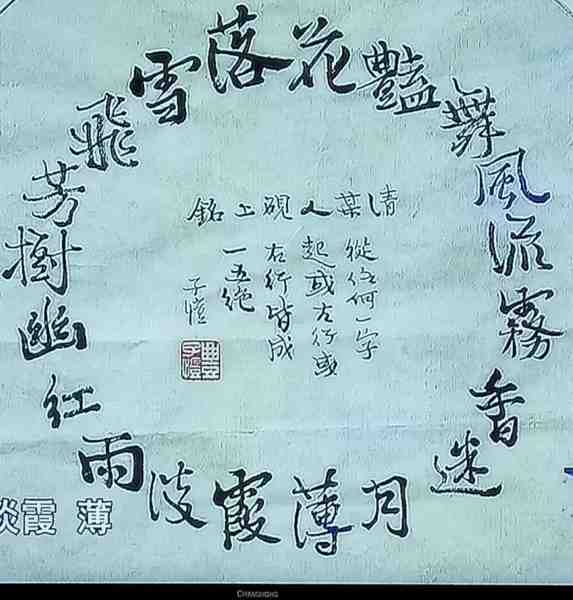 落花艷舞風流霧香迷月薄霞淡雨紅幽樹芳飛雪
清葉人硯上銘
從任何一字
起或左行或
右行皆成
一五絕
子愷
豐子愷
淡霞 薄
CHANGHONG